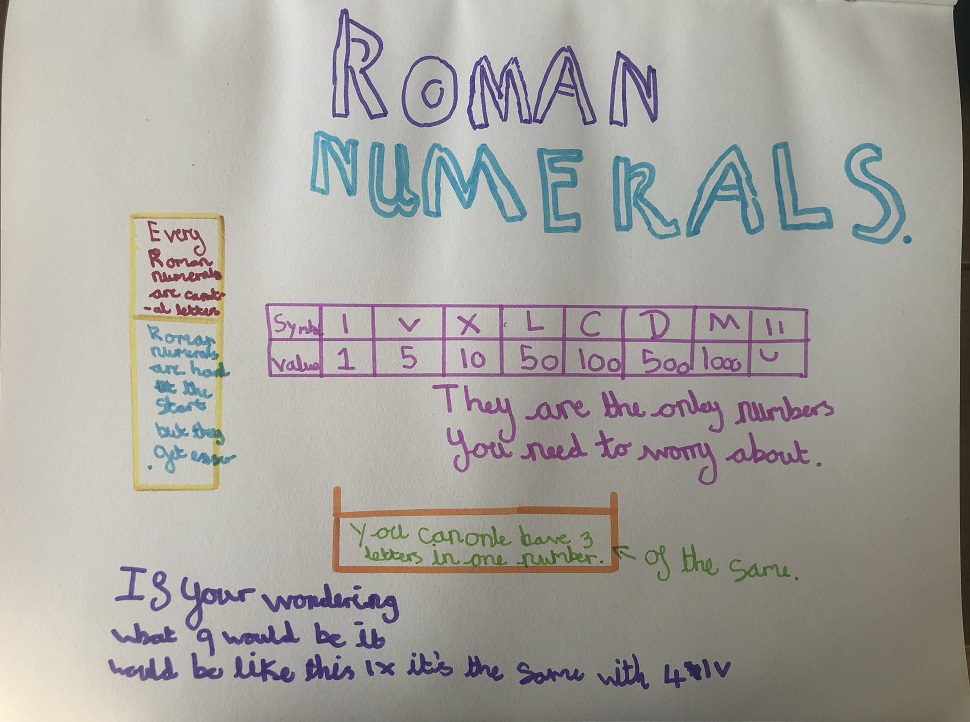 ROMAN
NUMERALS.
Every
Roman
numerals
are capit-
-al letters
Roman
numerals
are hard
at the
start
but they
get easier
Symbol I V X L C D M
Value 1 5 10 50 100 500 1000
They are the only numbers
you need to worry about.
You can onle have 3
letters in one number.
of the same.
If your wondering
what 9 would be it
would be like this IX it's the same with 4 IV